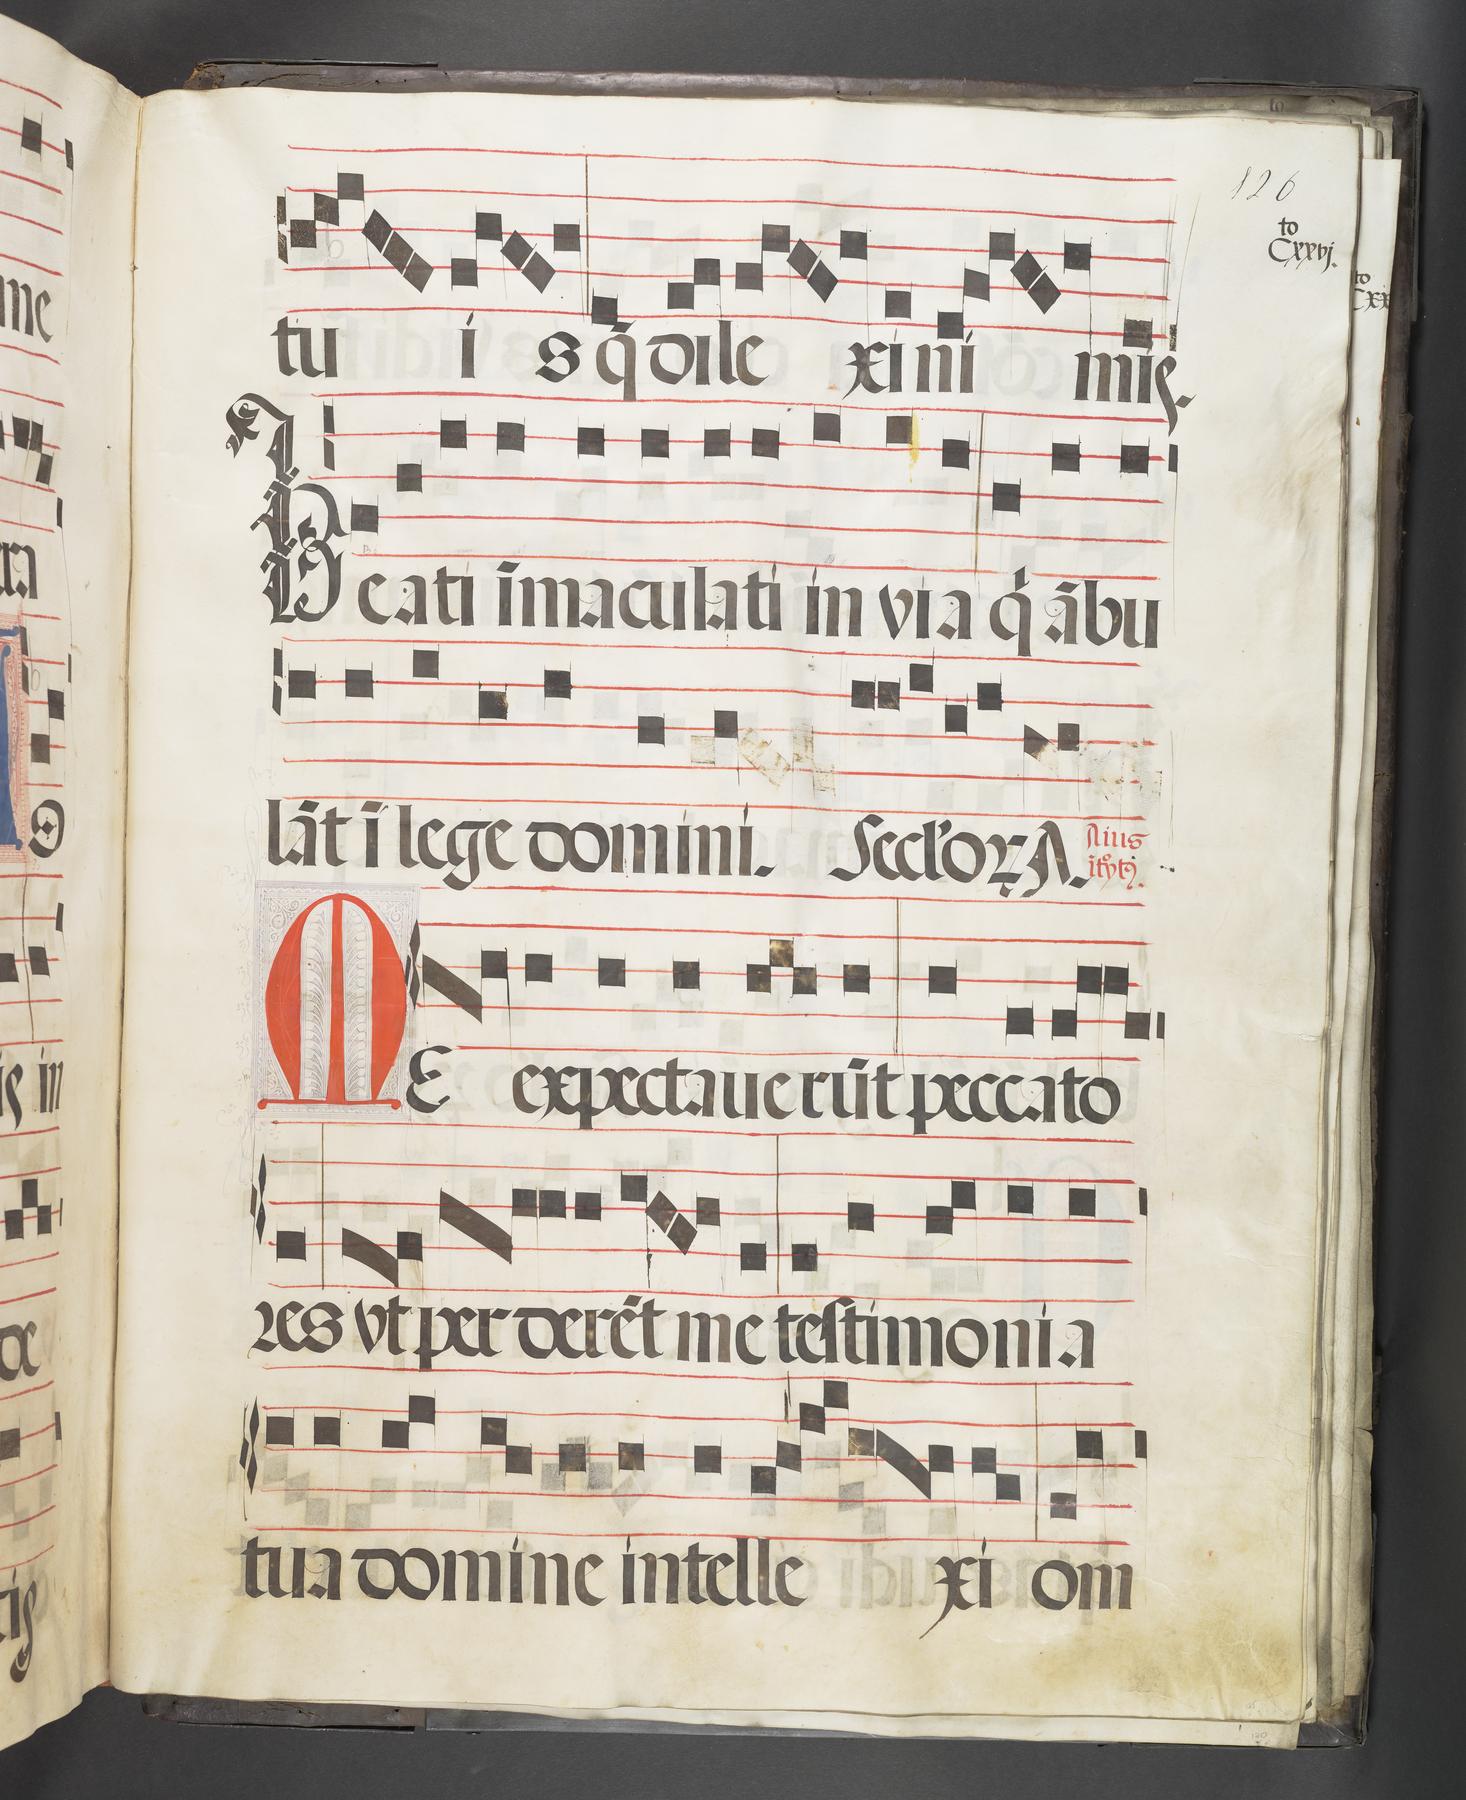 126
to
Cxxvj.
tu i s q̄ dile xi ni mis.
B eati īmaculati in via q̇ ābu
lāt ī lege domini. Secl'oꝝ A.
M E expectauerūt peccato
res vt per derēt me testimonia
tua domine intelle xi om